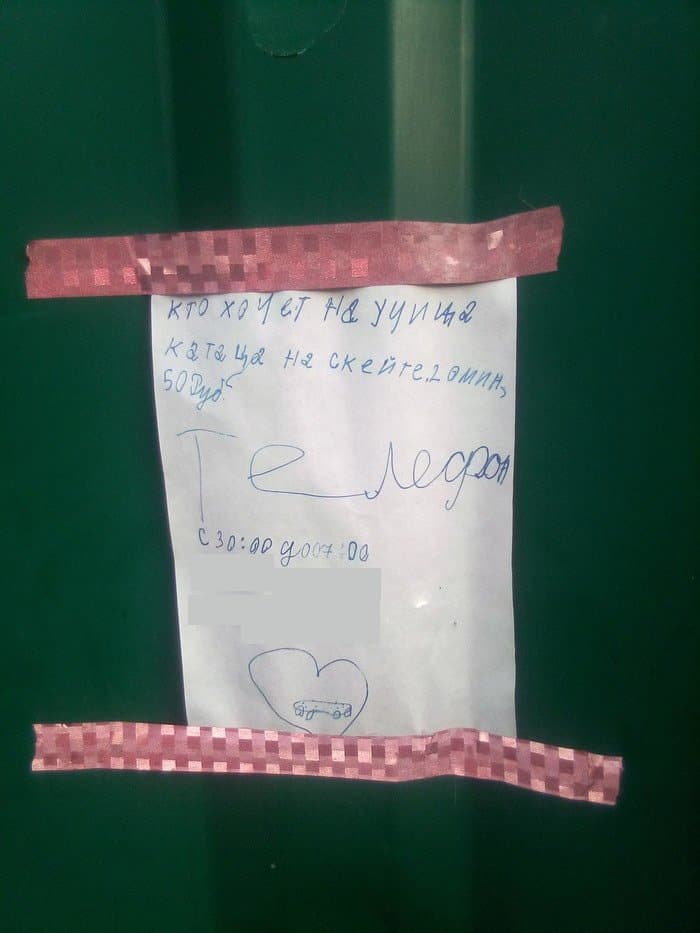 кто хочет на улица
катаца на скейте.20мин,
50руб.
Телефон
с 30:00 до07:00